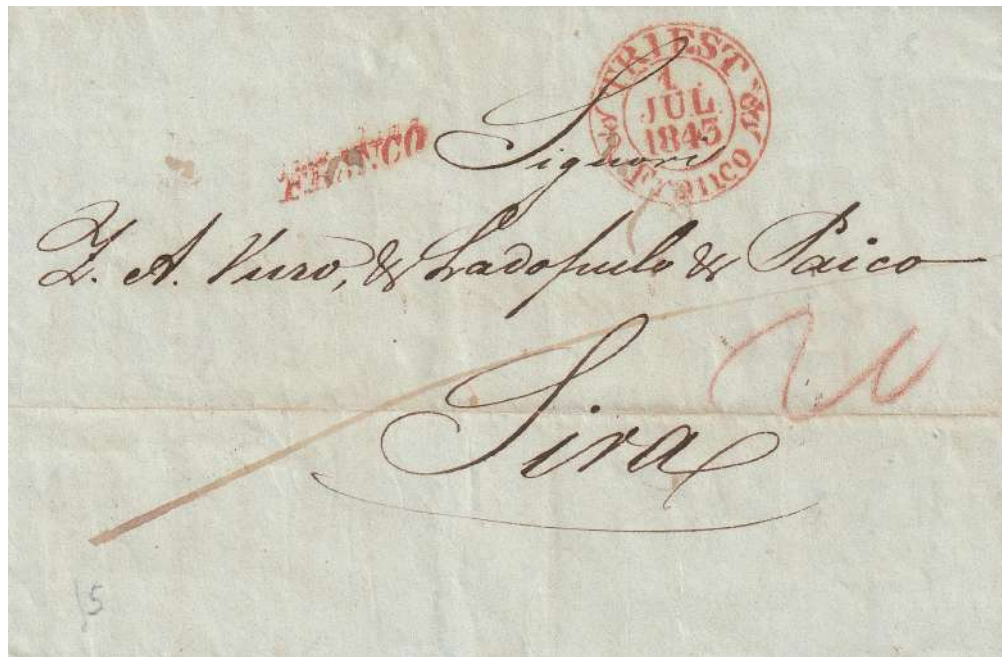 TRIEST
1
JUL
1843
Franco
FRANCO
Signori
Z. A. Vuro, & Ladopulo & Paico
Sira
20